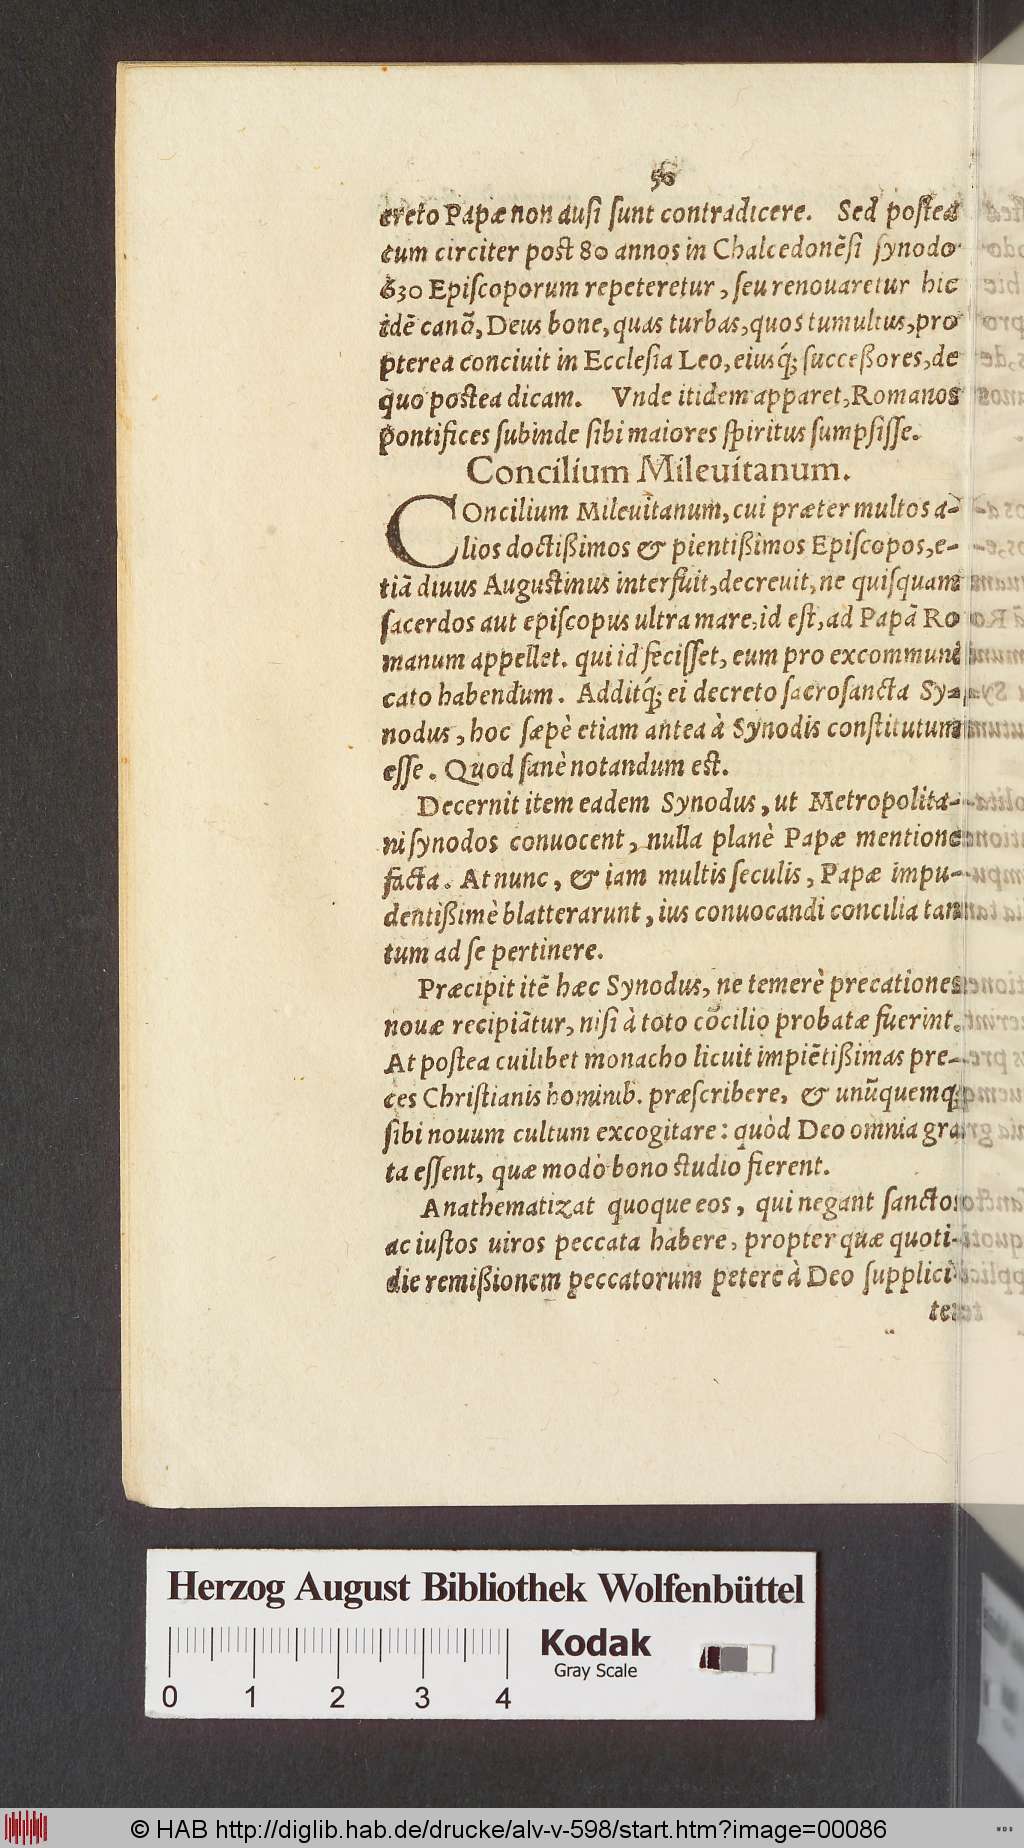 56
creto Papæ non ausi sunt contradicere. Sed postea
cum circiter post 80 annos in Chalcedonẽsi synodo
630 Episcoporum repeteretur, seu renouaretur hic
idẽ canõ, Deus bone, quas turbas, quos tumultus, pro
pterea conciuit in Ecclesia Leo, eiusq́; succeßores, de
quo postea dicam. Vnde itidem apparet, Romanos
pontifices subinde sibi maiores spiritus sumpsisse.
Concilium Mileuitanum.
COncilium Mileuitanum, cui præter multos a-
lios doctißimos & pientißimos Episcopos, e-
tiã diuus Augustinus interfuit, decreuit, ne quisquam
sacerdos aut episcopus ultra mare, id est, ad Papã Ro
manum appellet. qui id fecisset, eum pro excommuni
cato habendum. Additq́; ei decreto sacrosancta Sy-
nodus, hoc sæpè etiam antea à Synodis constitutum
esse. Quod sanè notandum est.
Decernit item eadem Synodus, ut Metropolita-
ni synodos conuocent, nulla planè Papæ mentione
facta. At nunc, & iam multis seculis, Papæ impu-
dentißimè blatterarunt, ius conuocandi concilia tan
tum ad se pertinere.
Præcipit itẽ hæc Synodus, ne temerè precationes
nouæ recipiãtur, nisi à toto cõcilio probatæ fuerint.
At postea cuilibet monacho licuit impiẽtißimas pre-
ces Christianis hominib. præscribere, & unũquemq;
sibi nouum cultum excogitare: quòd Deo omnia gra
ta essent, quæ modò bono studio fierent.
Anathematizat quoque eos, qui negant sanctos
ac iustos uiros peccata habere, propter quæ quoti-
die remißionem peccatorum petere à Deo supplici
ter
Herzog August Bibliothek Wolfenbüttel
Kodak
Gray Scale
0 1 2 3 4
© HAB http://diglib.hab.de/drucke/alv-v-598/start.htm?image=00086